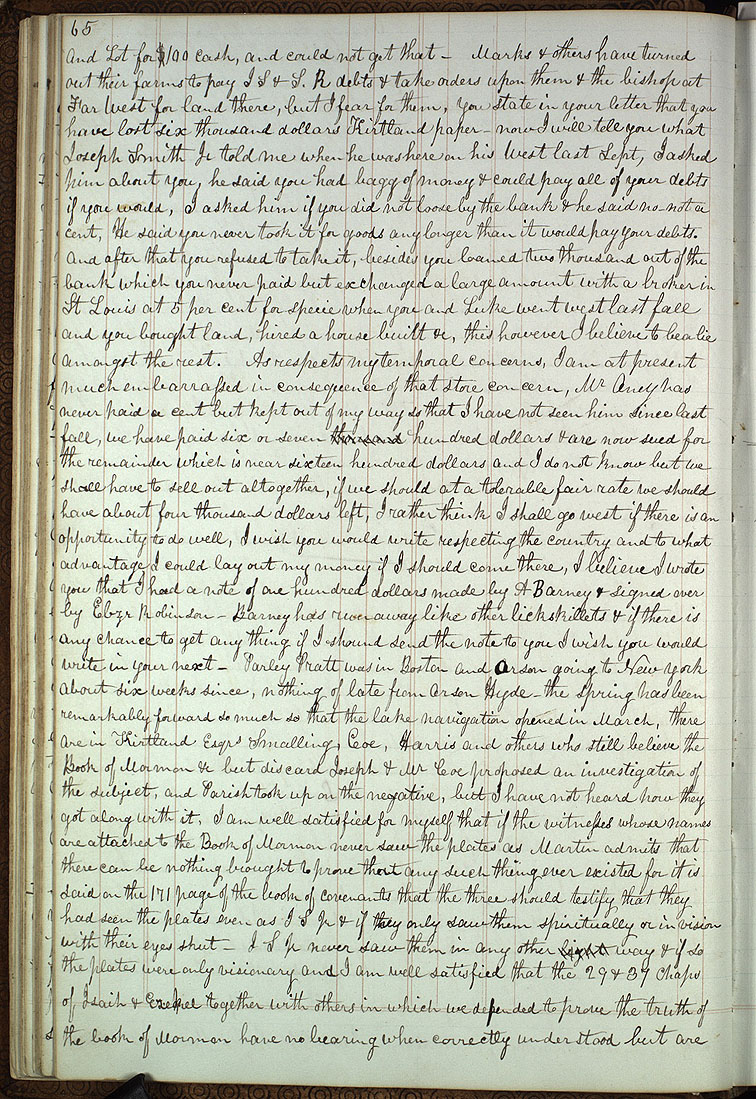 65
and Lot for $100 cash, and could not get that – Marks & others have turned
out their farms to pay J S & S. R debts & take orders upon them & the bishop at
Far West for land there, but I fear for them, You state in your letter that you
have lost six thousand dollars Kirtland paper – now I will tell you what
Joseph Smith Jr told me when he was here on his West last Sept, I asked
him about you, he said you had bagg of money & could pay all of your debts
if you would, I asked him if you did not loose by the bank & he said no not a
cent, He said you never took it for goods any longer than it would pay your debts.
and after that you refused to take it, besides you loaned two thousand out of the
bank which you never paid but exchanged a large amount with a broker in
St Louis at 5 per cent for specie when you and Luke went west last fall
and you bought land, hired a house built &c, this however I believe to be a lie
amongst the rest. As respects my temporal concerns, I am at present
much embarrassed in consequence of that store concern, Mr Andy has
never paid a cent but kept out of my way so that I have not seen him since last
fall, we have paid six or seven thousand hundred dollars & are now sued for
the remainder which is near sixteen hundred dollars and I do not know but we
shall have to sell out altogether, if we should at a tolerable fair rate we should
have about four thousand dollars left, I rather think I shall go west if there is an
opportunity to do well, I wish you would write respecting the country and to what
advantage I could lay out my money if I should come there, I believe I wrote
you that I had a note of one hundred dollars made by A Barney & signed over
by Ebzr Robinson – Barney has run away like other lickskillets & if there is
any chance to get any thing if I shound send the note to you I wish you would
write in your next – Parley Pratt was in Boston and Orson going to New York
about six weeks since, nothing of late from Orson Hyde – the spring has been
remarkably forward so much so that the lake navigation opened in March, there
are in Kirtland Esqrs Smalling, Coe, Harris and others who still believe the
Book of Mormon &c but discard Joseph & Mr Coe proposed an investigation of
the subject, and Parish took up on the negative, but I have not heard how they
got along with it, I am well satisfied for myself that if the witnesses whose names
are attached to the Book of Mormon never saw the plates as Martin admits that
there can be nothing brought to prove that any such thing ever existed for it is
said on the 171 page of the book of covenants that the three should testify that they
had seen the plates even as J S Jr & if they only saw them spiritually or in vision
with their eyes shut – J S Jr never saw them in any other light way & if so
the plates were only visionary and I am well satisfied that the 29 & 37 chaps
of Isaih & Ezekel together with others in which we depended to prove the truth of
the book of Mormon have no bearing when correctly understood but are